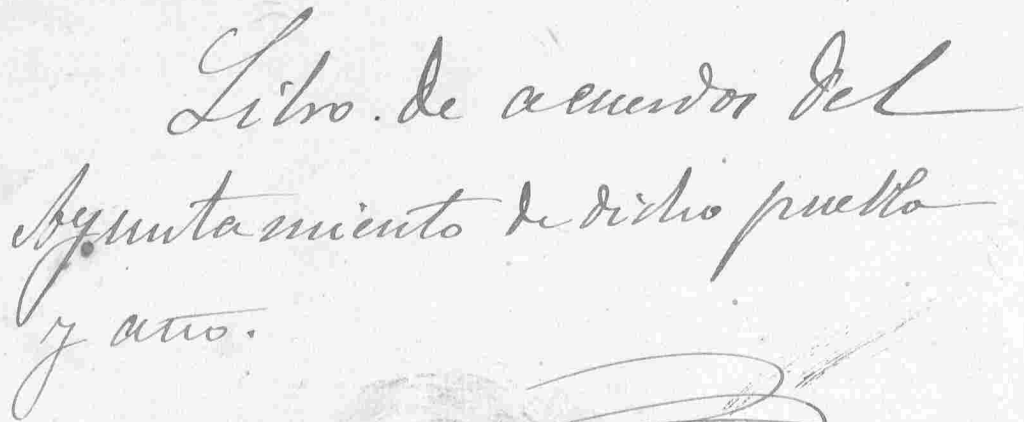 Libro de acuerdos del
Ayuntamiento de dicho pueblo
y año.